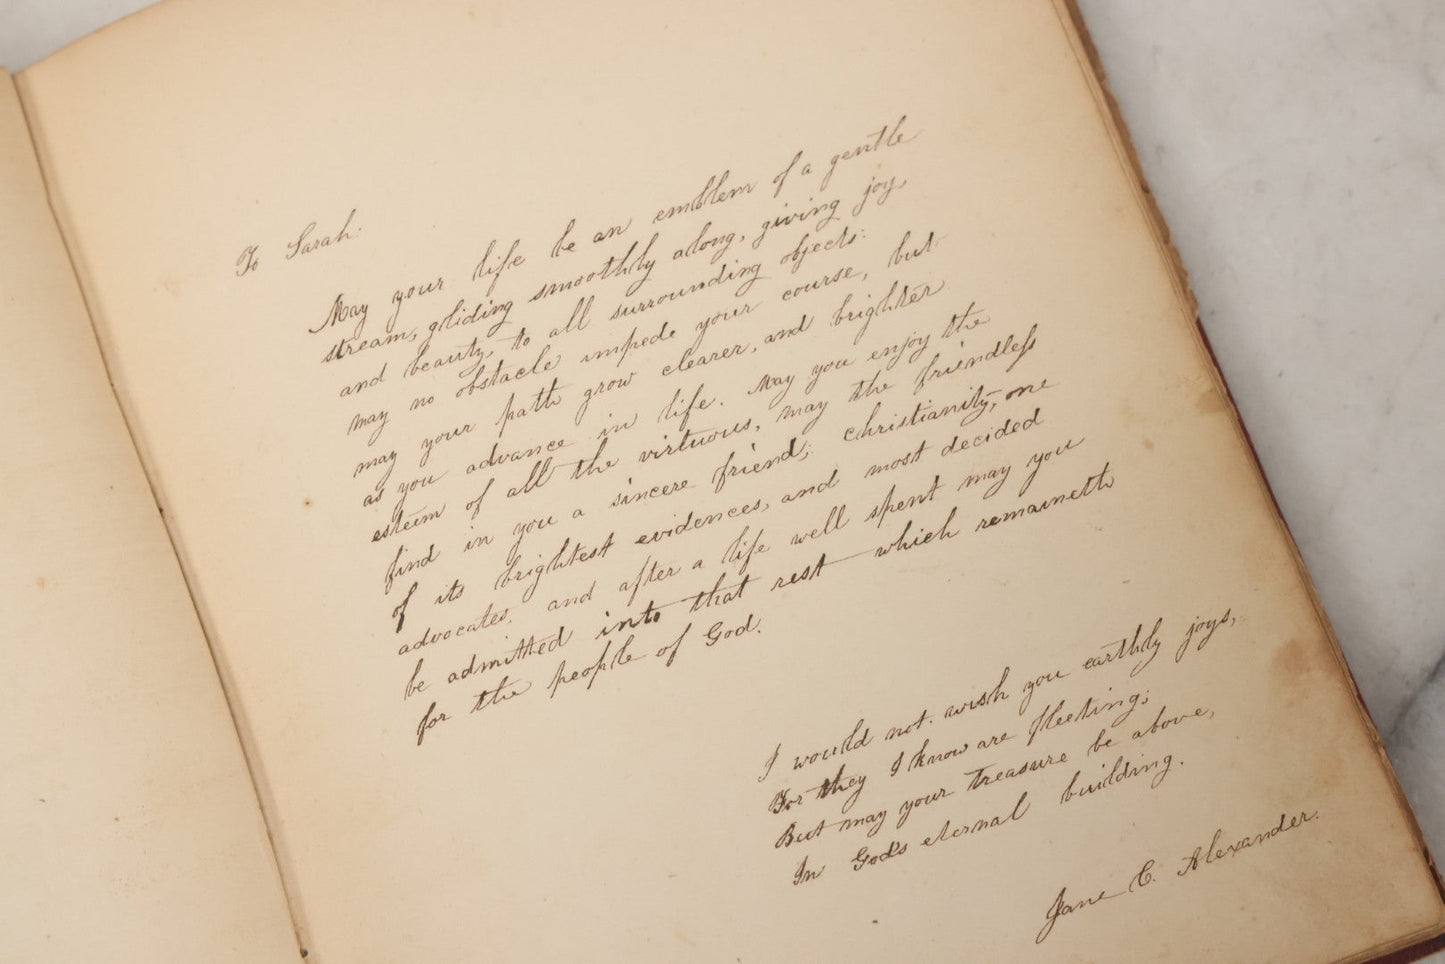 To Sarah:
May your life be an emblem of a gentle
stream, gliding smoothly along, giving joy,
and beauty, to all surrounding objects:
may no obstacle impede your course, but
may your path grow clearer, and brighter
as you advance in life. May you enjoy the
esteem of all the virtuous, may the friendless
find in you a sincere friend; christianity, one
of its brightest evidences, and most decided
advocates. and after a life well spent may you
be admitted into that rest which remaineth
for the people of God.
I would not wish you earthly joys,
For they I know are fleeting;
But may your treasure be above,
In God's eternal building.
Jane C. Alexander.